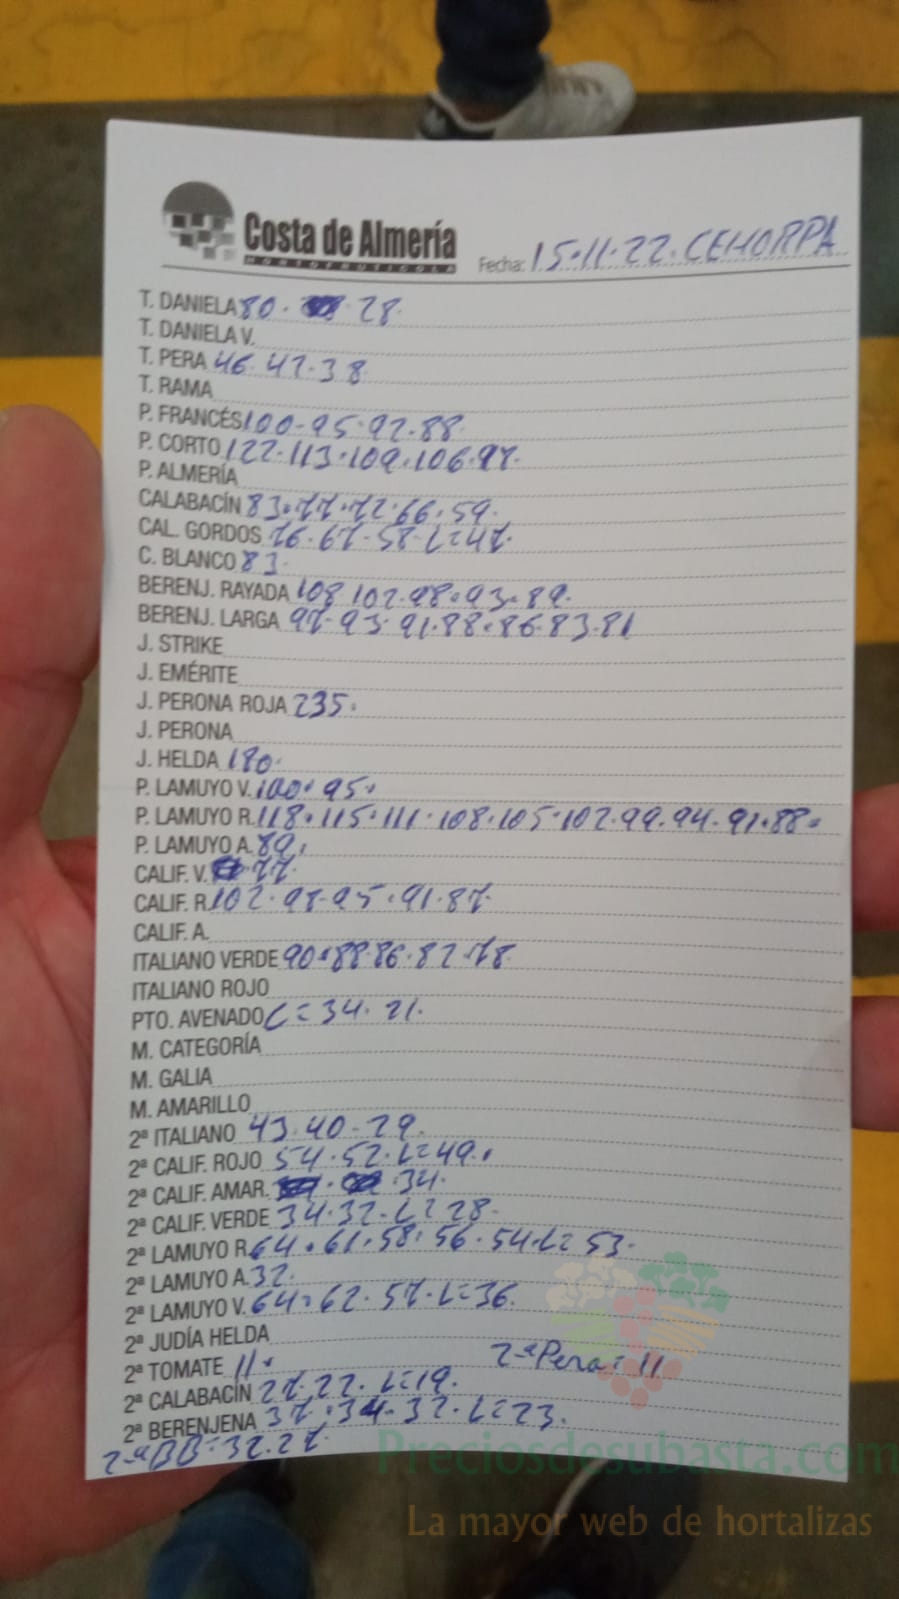 Costa de Almería
HORTOFRUTICOLA
Fecha: 15.11.22. CEHORPA
T. DANIELA 80. 28.
T. DANIELA V.
T. PERA 46. 47. 38
T. RAMA
P. FRANCÉS 100-95.92.88.
P. CORTO 122.113.109.106.97.
P. ALMERÍA
CALABACÍN 83.77.72.66.59.
CAL. GORDOS 76.67.58.L=47.
C. BLANCO 83.
BERENJ. RAYADA 108 102.98.93.89.
BERENJ. LARGA 97.93.91.88.86.83.81
J. STRIKE
J. EMÉRITE
J. PERONA ROJA 235.
J. PERONA
J. HELDA 180.
P. LAMUYO V. 100. 95.
P. LAMUYO R. 118.115.111.108.105.102.99.94.91.88.
P. LAMUYO A. 89.
CALIF. V. 77.
CALIF. R. 102.98.95.91.87.
CALIF. A.
ITALIANO VERDE 90.88.86.82.78.
ITALIANO ROJO
PTO. AVENADO C=34.21.
M. CATEGORÍA
M. GALIA
M. AMARILLO
2ª ITALIANO 43.40-29.
2ª CALIF. ROJO 54.52.L=49.
2ª CALIF. AMAR. 34.
2ª CALIF. VERDE 34.32.L=28.
2ª LAMUYO R. 64.61.58.56.54.L=53.
2ª LAMUYO A. 32.
2ª LAMUYO V. 64.62.57.L=36.
2ª JUDÍA HELDA
2ª TOMATE 11. 2ªPera=11
2ª CALABACÍN 27.22.L=19.
2ª BERENJENA 37.34.32.L=23.
2ªBB=32.27.
Preciosdesubasta.com
La mayor web de hortalizas